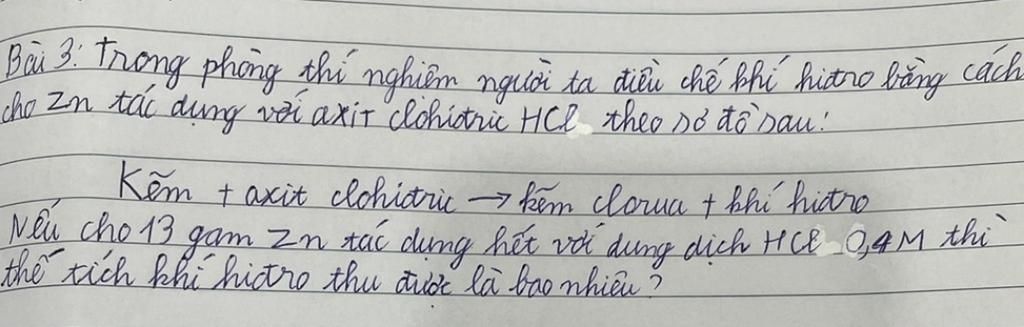 Bài 3: Trong phòng thí nghiệm người ta điều chế khí hiđro bằng cách
cho Zn tác dụng với axit clohiđric HCl theo sơ đồ sau:
Kẽm + axit clohiđric → kẽm clorua + khí hiđro
Nếu cho 13 gam Zn tác dụng hết với dung dịch HCl 0,4M thì
thể tích khí hiđro thu được là bao nhiêu?